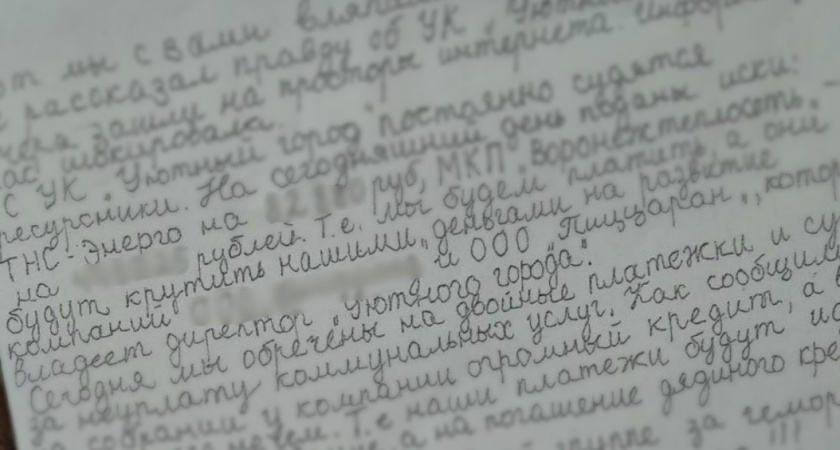 от мы с вами вляпа
рассказал правду об УК „Уютн
зашли на просторы интернета. Инфор
ас шокировала.
С УК „Уютный город" постоянно судятся
ресурсники. На сегодняшний день поданы иски:
ТНС-Энерго на руб, МКП „Воронежтеплосеть"
на рублей. Т.е. мы будем платить, а они
будут крутить нашими деньгами на развитие
компаний и ООО „Пиццаран", котор
владеет директор „Уютного города".
Сегодня мы обречены на двойные платежки и су
за неуплату коммунальных услуг. Как сообщили
на собрании у компании огромный кредит, а
нечем. Т.е наши платежи будут ис
а на погашение дядиного кре
группе за гемор
!!!